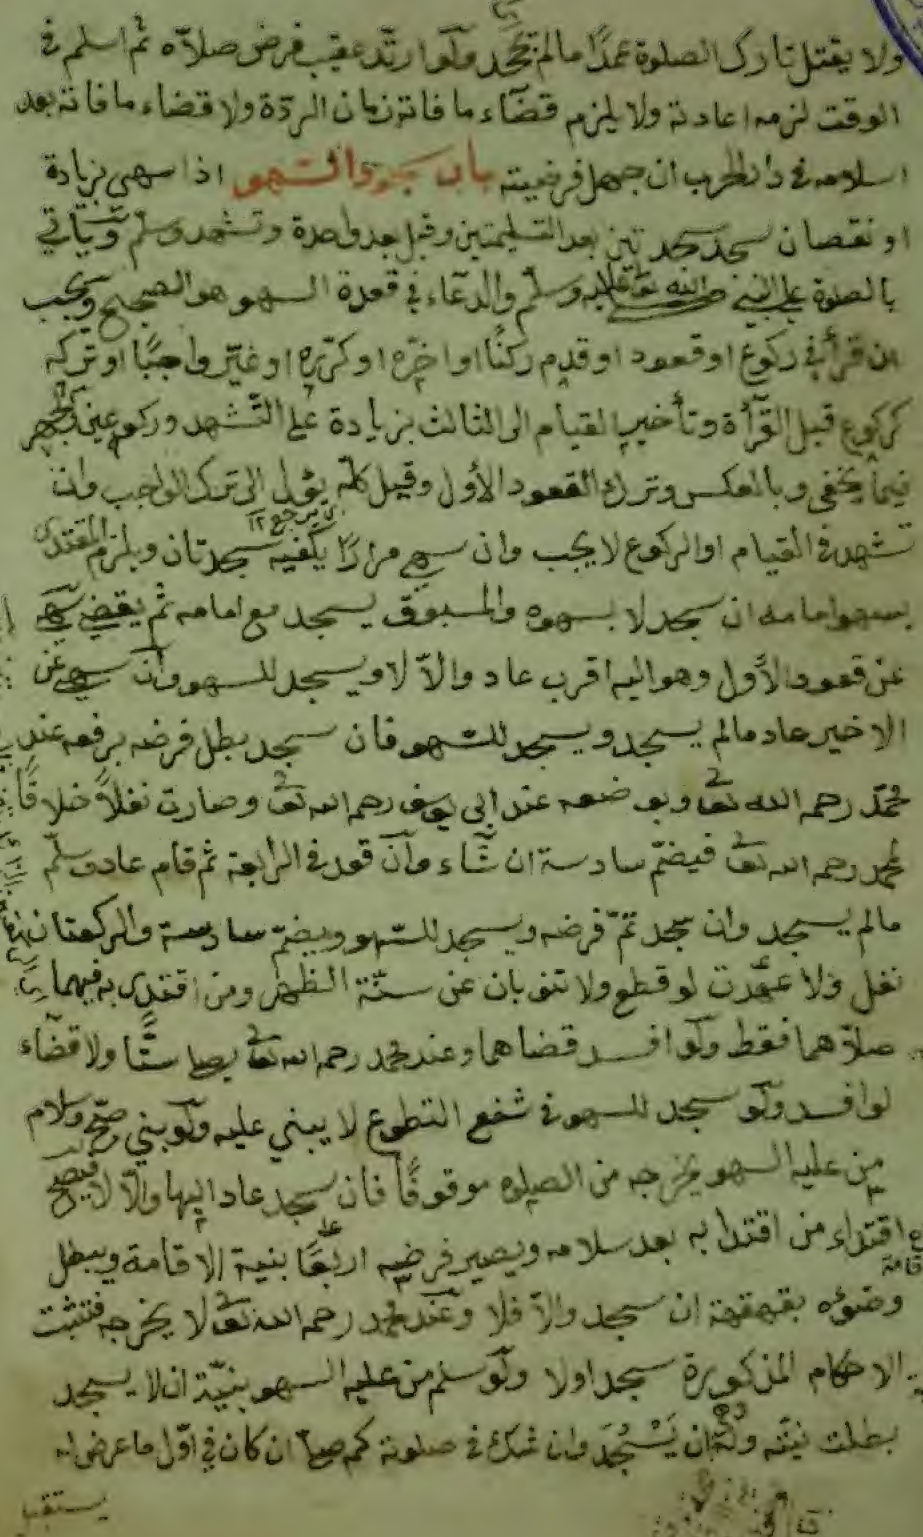 ولا يقتل تارك الصلوة عمدًا مالم يجحد ولو ارتد عقيب فرض صلاه ثم اسلم في
الوقت لزمه اعادته ولا يلزم قضآء ما فاته زمان الردة ولا قضاء ما فاته بعد
اسلامه في دار الحرب ان جهل فرضيته باب سجود السهو اذا سهى بزيادة
او نقصان سجد سجدتين بعد التسليمتين وقيل بعد واحدة وتشهد وسلم ويأتي
بالصلوة على النبي صلى الله تعا عليه وسلم والدعاء في قعدة السهو هو الصحيح ويجب
ان قرأ في ركوع او قعود او قدم ركنًا او اخره او كرره او غير واجبًا او تركه
كركوع قبل القرآة وتأخير القيام الى الثالث بزيادة على التشهد وركوعين والجهر
فيما يخفى وبالعكس وترك القعود الأول وقيل كله يؤل الى ترك الواجب وان
تشهد في القيام او الركوع لا يجب وان سهى مرارًا يكفيه سجدتان ويلزم المقتدى
بسهو امامه ان سجد لا بسهوه والمسبوق يسجد مع امامه ثم يقضى سهى
عن قعود الأول وهو اليه اقرب عاد والا لا ويسجد للسهو وان سهى عن
الاخير عاد مالم يسجد ويسجد للسهو فان سجد بطل فرضه برفعه عند
محمد رحمه الله تعا وبوضعه عند ابى يوسف رحمه الله تعا وصارت نفلاً خلافًا
لمحمد رحمه الله تعا فيضم سادسة ان شآء وان قعد في الرابعة ثم قام عاد وسلم
مالم يسجد وان سجد تم فرضه ويسجد للسهو ويضم سادسة والركعتان
نفل ولا عهدت لو قطع ولا تنوبان عن سنة الظهر ومن اقتدى به فيهما
صلاهما فقط ولو افسد قضاهما وعند محمد رحمه الله تعا يصلى ستًّا ولا قضآء
لو افسد ولو سجد للسهو في شفع التطوع لا يبني عليه ولو بنى صح وسلام
من عليه السهو يخرجه من الصلوة موقوفًا فان سجد عاد اليها والا لا فيصح
اقتداء من اقتدا به بعد سلامه ويصير فرضه اربعًا بنية الاقامة ويبطل
وضوءه بقهقهة ان سجد والا فلا وعند محمد رحمه الله تعا لا يخرجه فتثبت
الاحكام المذكورة سجد اولا ولو سلم من عليه السهو بنية ان لا يسجد
بطلت نيته وله ان يَسْجُدَ وان شك في صلوته كم صلى ان كان في اول ما عرض له
يستقبل